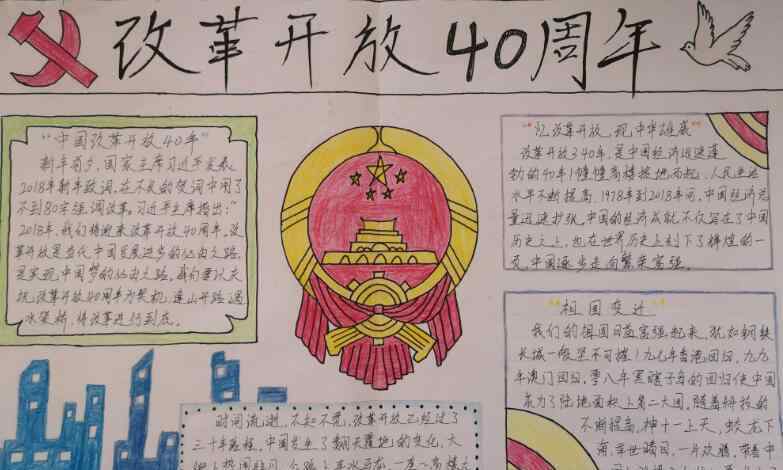 改革开放40周年
"中国改革开放40年"
新年前夕,国家主席习近平发表
2018年新年致词,在不长的贺词中用了
不到80字强调改革。习近平主席指出:"
2018年,我们将迎来改革开放40周年,改
革开放是当代中国发展进步的必由之路,
是实现中国梦的必由之路,我们要以庆
祝改革开放40周年为契机,逢山开路,遇
水架桥,将改革进行到底。
"忆改革开放,现中华雄衣"
改革开放340年,是中国经济迅速蓬
勃的40年!幢幢高楼拔地而起,人民生活
水平不断提高,1978年到2018年间,中国经济总
量迅速扩张,中国的经济成就不仅写在了中国
历史之上,也在世界历史上刻下了辉煌的一
页,中国逐步走向繁荣富强。
"祖国变迁"
我们的祖国日益富强起来,犹如钢铁
长城一般坚不可摧!九七年香港回归,九九
年澳门回归,零八年黑瞎子岛的回归使中国
成为了陆地面积上第二大国,随着科技的
不断提高,神十一上天,蛟龙下
海,举世瞩目,一片欢腾,带着中
时间流逝,不知不觉,改革开放已经过了
三十年历程,中国发生了翻天覆地的变化,大